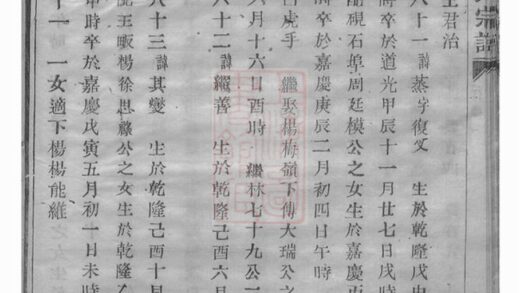 宗譜
君治
八十一 諱蒸字復文 生於乾隆戊申
時卒於道光甲辰十一月廿七日戌時
配硯石埠周廷模公之女生於嘉慶丙
時卒於嘉慶庚辰二月初四日午時
白虎手 繼娶楊梅嶺下傅大瑞公之
六月十六日酉時 繼林七十九公一
八十二 諱繼善 生於乾隆己酉六月
八十三 諱其變 生於乾隆己酉十月
配王畈楊徐思公之女生於乾隆
申時卒於嘉慶戊寅五月初一日未時
十一 一女適下楊楊能維